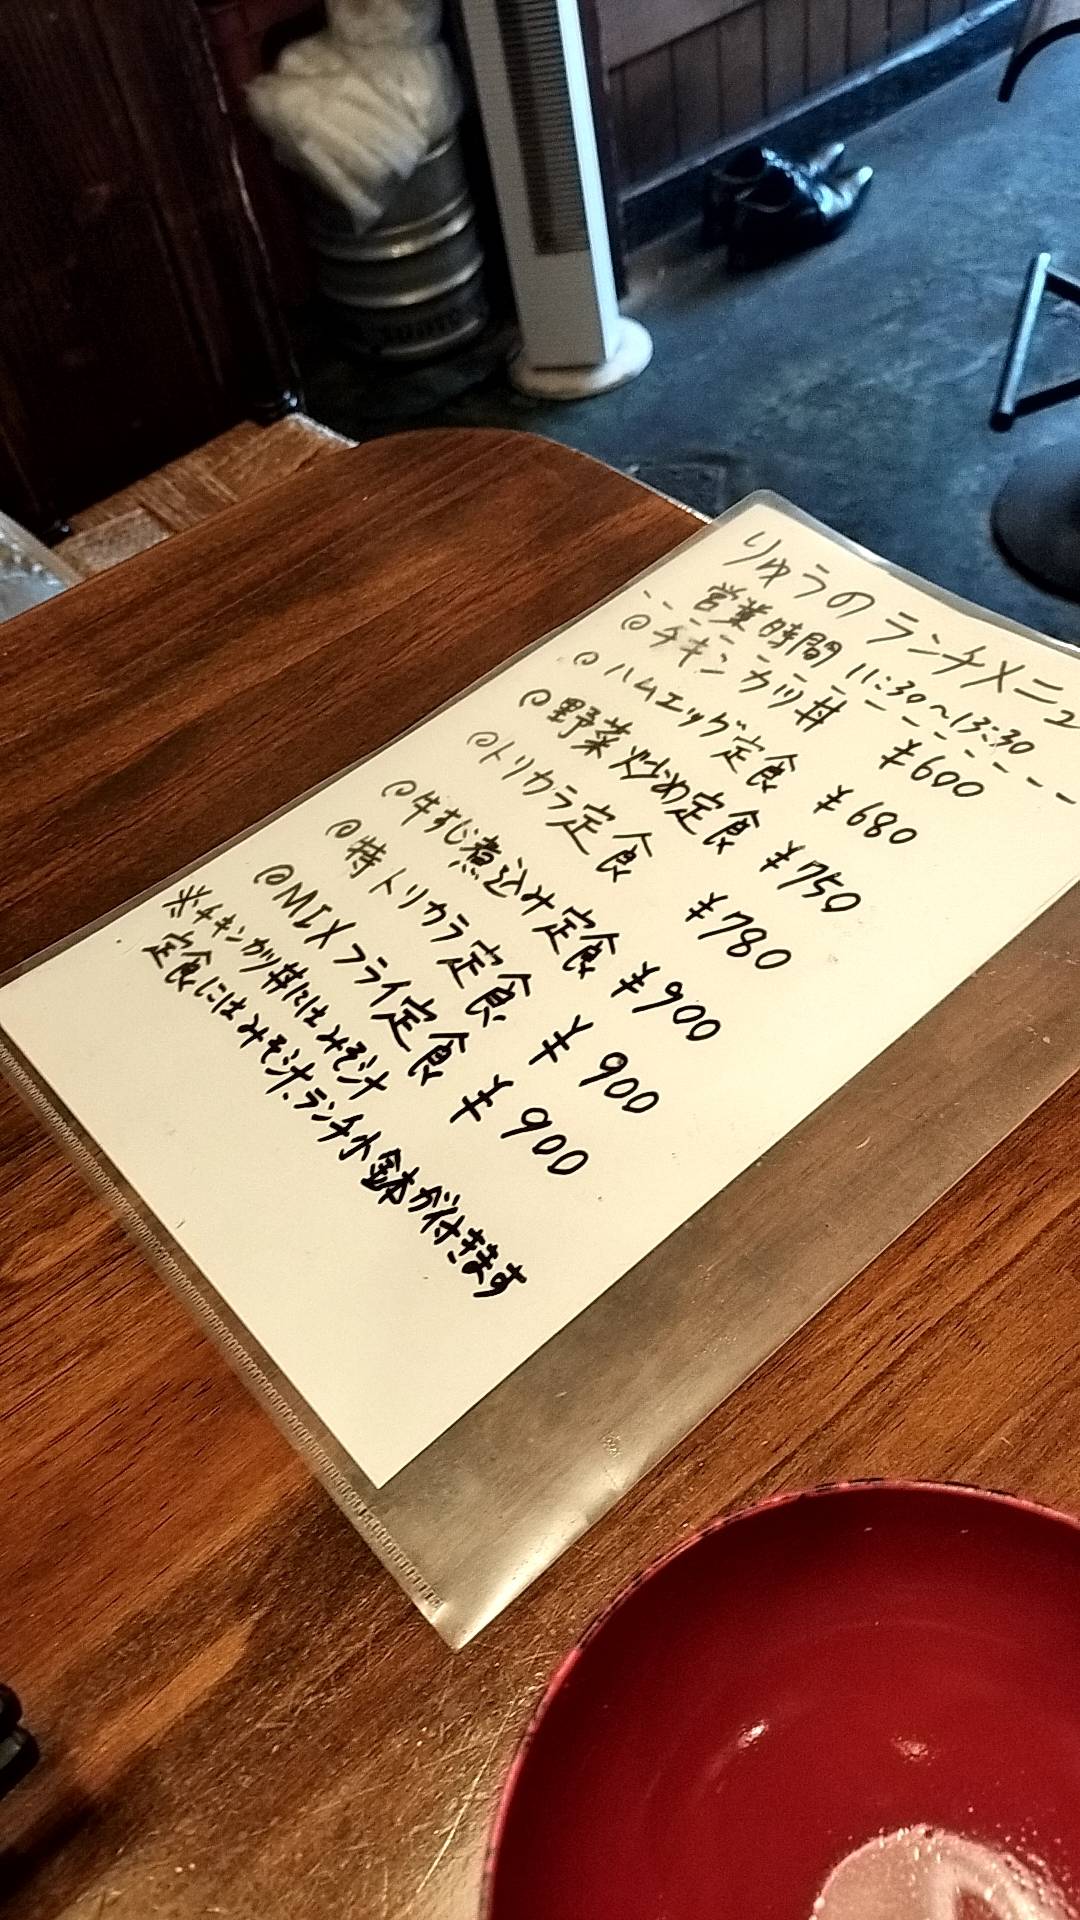 りゅうのランチメニュ
営業時間 11:30~13:30
@チキンカツ丼 ¥600
@ハムエッグ定食 ¥680
@野菜炒め定食 ¥750
@トリカラ定食 ¥780
@牛すじ煮込み定食 ¥900
@特トリカラ定食 ¥900
@MIXフライ定食 ¥900
※チキンカツ丼にはみそ汁
定食にはみそ汁、ランチ小鉢が付きます